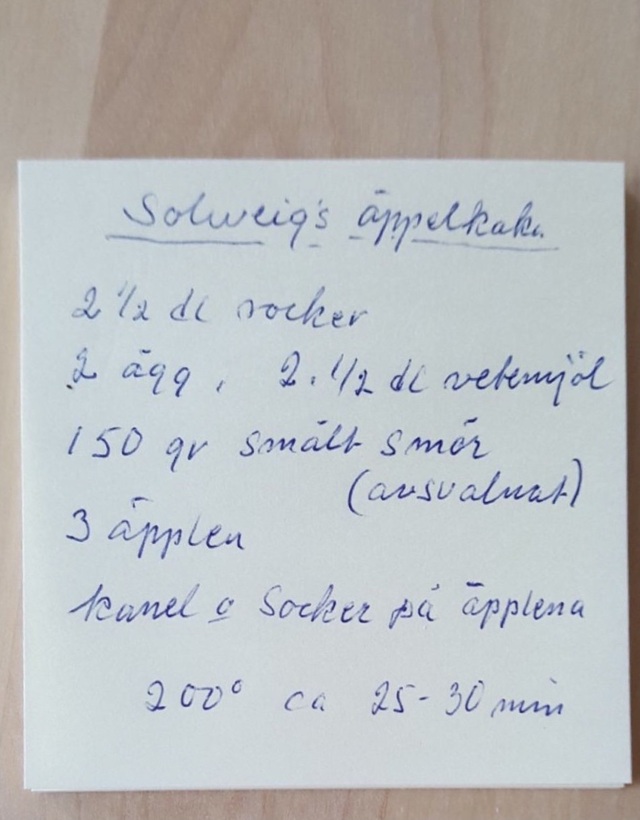 Solweig's äppelkaka
2 1/2 dl socker
2 ägg, 2.1/2 dl vetemjöl
150 gr smält smör
(avsvalnat)
3 äpplen
kanel o socker på äpplena
200° ca 25-30 min